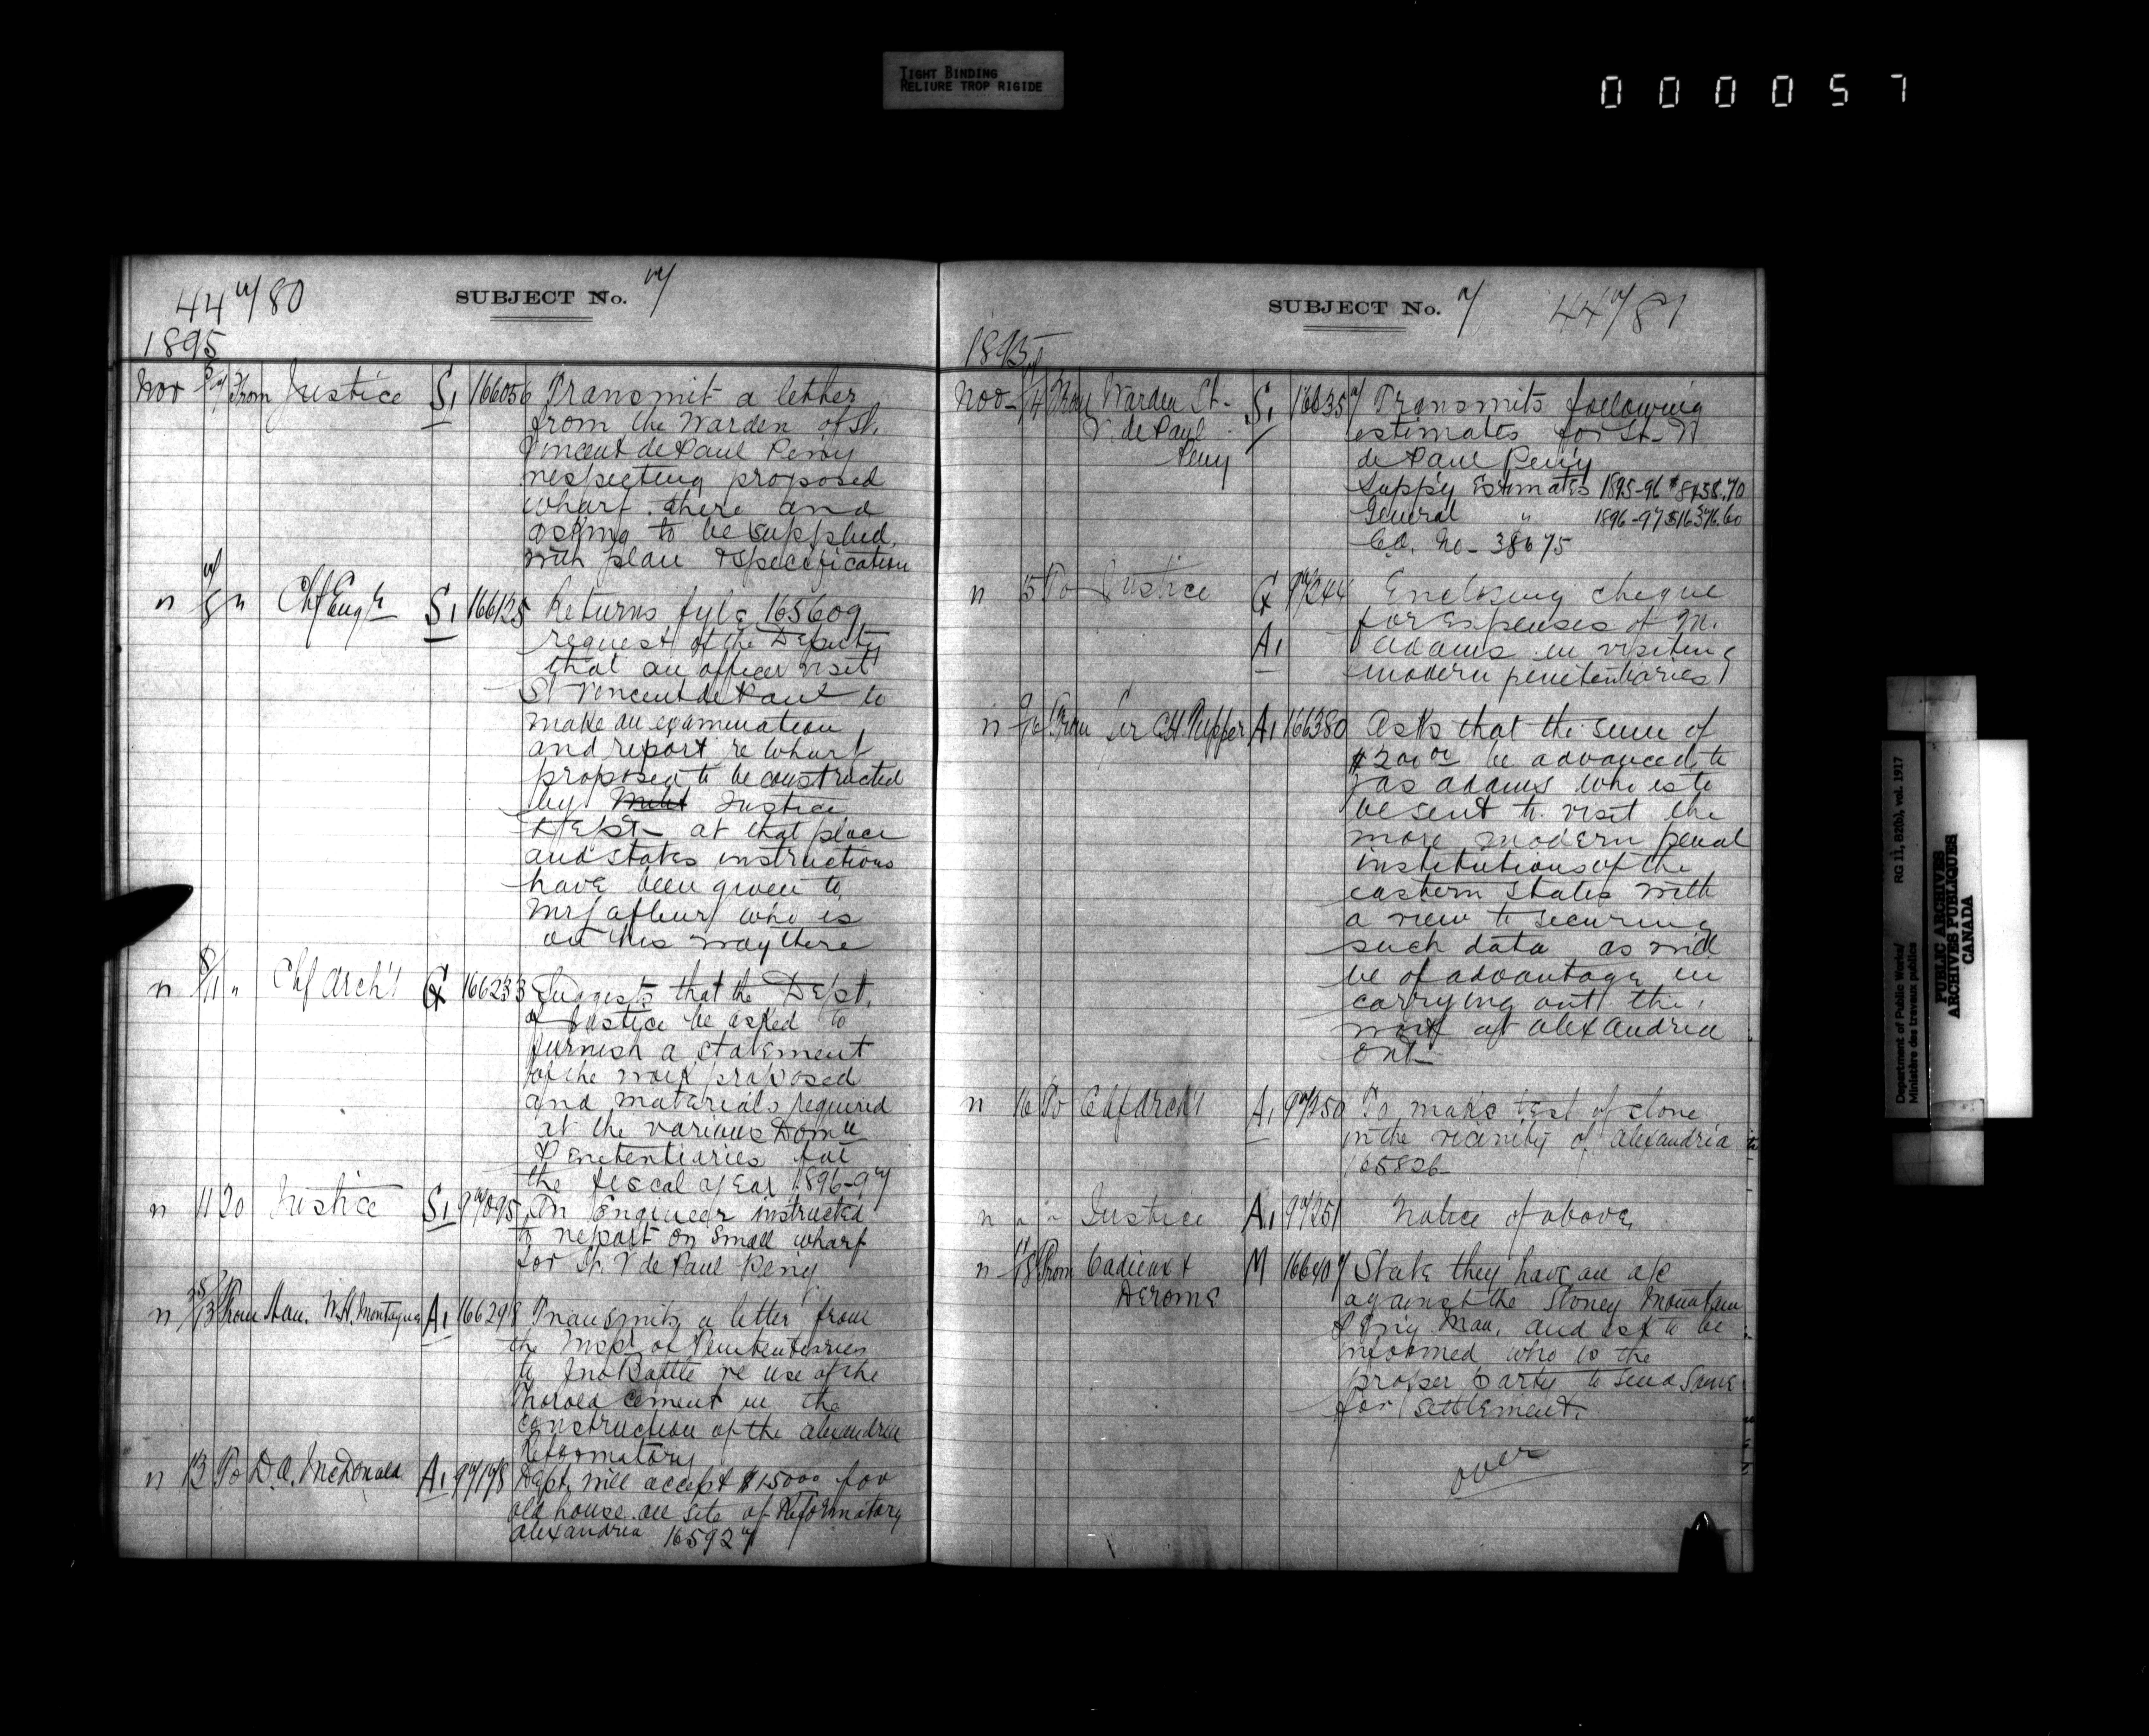 TIGHT BINDING
RELIURE TROP RIGIDE
000057
SUBJECT No. 7
4477/80
1895
Nov From Justice S1 166056 Transmit a letter
from the Warden of St.
Vincent de Paul Peny
respecting proposed
wharf there and
asking to be supplied
with plan & specification
" " Chf Engr S1 166125 Returns fyle 165609
request of the Deputy
that an officer visit
St Vincent de Paul to
make an examination
and report re wharf
proposed to be constructed
by Justice
Dept at that place
and states instructions
have been given to
Mr who is
on his way there
" 8/11 " Chf Archt G 166233 Suggests that the Dept.
of Justice be asked to
furnish a statement
of the work proposed
and materials required
at the various Domn
Penetentiaries for
the fiscal year 1896-97
" 11 To Justice S1 97095 An Engineer instructed
to report on small wharf
for St. V de Paul Peny
" From Hon. W.H. Montague A1 166298 Transmits a letter from
the Inspr of Penitentiaries
to Jno Battle re use of the
Thorold cement in the
construction of the Alexandria
Reformatory
" 13 To D.A. McDonald A1 97178 Dept. will accept $150 00 for
old house on site of Reformatory
Alexandria 165927
SUBJECT No. 7
447/81
1895
Nov From Warden St. S1 166357 Transmits following
V. de Paul estimates for St. V
Peny de Paul Peny
Supp'y Estimates 1895-96
General " 1896-97
No. 38675
" 15 To Justice G 97244 Enclosing cheque
for Expenses of M.
A1 Adams in visiting
modern penitentiaries
" From Sir C.H. Tupper A1 166380 Asks that the sum of
$200 00 be advanced to
Jas Adams who is to
be sent to visit the
more modern penal
institutions of the
eastern States with
a view to securing
such data as will
be of advantage in
carrying out the
work at Alexandria
Ont
" 16 To Chf Archt A1 97250 To make test of stone
in the vicinity of Alexandria
165826
" " " Justice A1 97251 Notice of above
" 18 From Cadieux & M 166407 State they have an a/c
Derome against the Stoney Mountain
Peny Man. and ask to be
informed who is the
proper party to send same
for settlement.
over
Department of Public Works/ RG 11, B2(b), vol. 1917
Ministère des travaux publics
PUBLIC ARCHIVES
ARCHIVES PUBLIQUES
CANADA